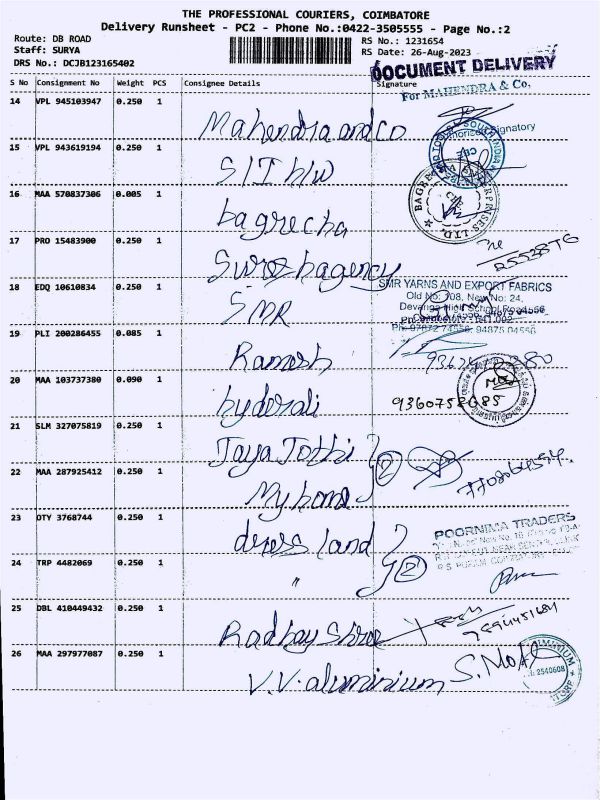 THE PROFESSIONAL COURIERS, COIMBATORE
Delivery Runsheet - PC2 - Phone No.:0422-3505555 - Page No.:2
Route: DB ROAD
Staff: SURYA
DRS No.: DCJB123165402
RS No.: 1231654
RS Date: 26-Aug-2023
DOCUMENT DELIVERY
S No Consignment No Weight PCS Consignee Details Signature
For MAHENDRA & Co.
14 VPL 945103947 0.250 1 Mahendra and Co
Authorised Signatory
15 VPL 943619194 0.250 1 SIT h/w
16 MAA 570837306 0.005 1 bagrecha
17 PRO 15483900 0.250 1 Suresh agency
18 EDQ 10610834 0.250 1 SMR
SMR YARNS AND EXPORT FABRICS
Old No: 108, New No: 24,
Devanga High School Road
Ph: 97872 74556, 94875 04556
19 PLI 200286455 0.085 1 Ramesh
20 MAA 103737380 0.090 1 hyderali
21 SLM 327075819 0.250 1 Jaya Jothi
22 MAA 287925412 0.250 1 My home
2
23 OTY 3768744 0.250 1 dress land
POORNIMA TRADERS
24 TRP 4482069 0.250 1 "
2
25 DBL 410449432 0.250 1 Radhay Shree
26 MAA 297977087 0.250 1 V.V. aluminium